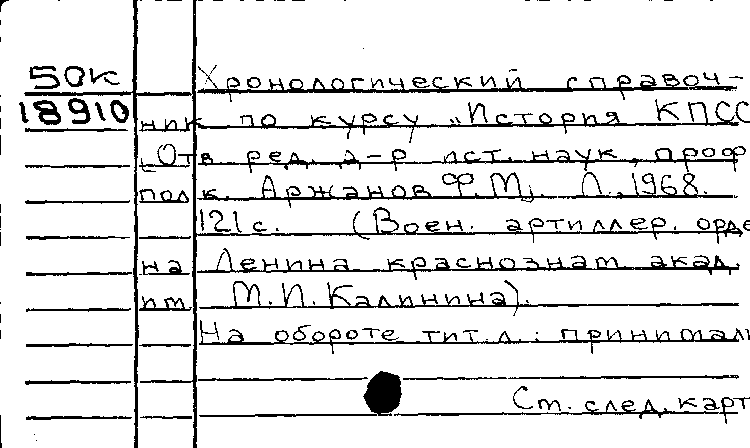 50к
18910
Хронологический справоч-
ник по курсу „История КПСС
[Отв ред. д-р ист. наук, проф
полк. Аржанов Ф.М]. Л., 1968.
121 с. (Воен. артиллер. орде
на Ленина краснознам акад.
им М.И.Калинина).
На обороте тит.л.: принимали
Ст. след. карт